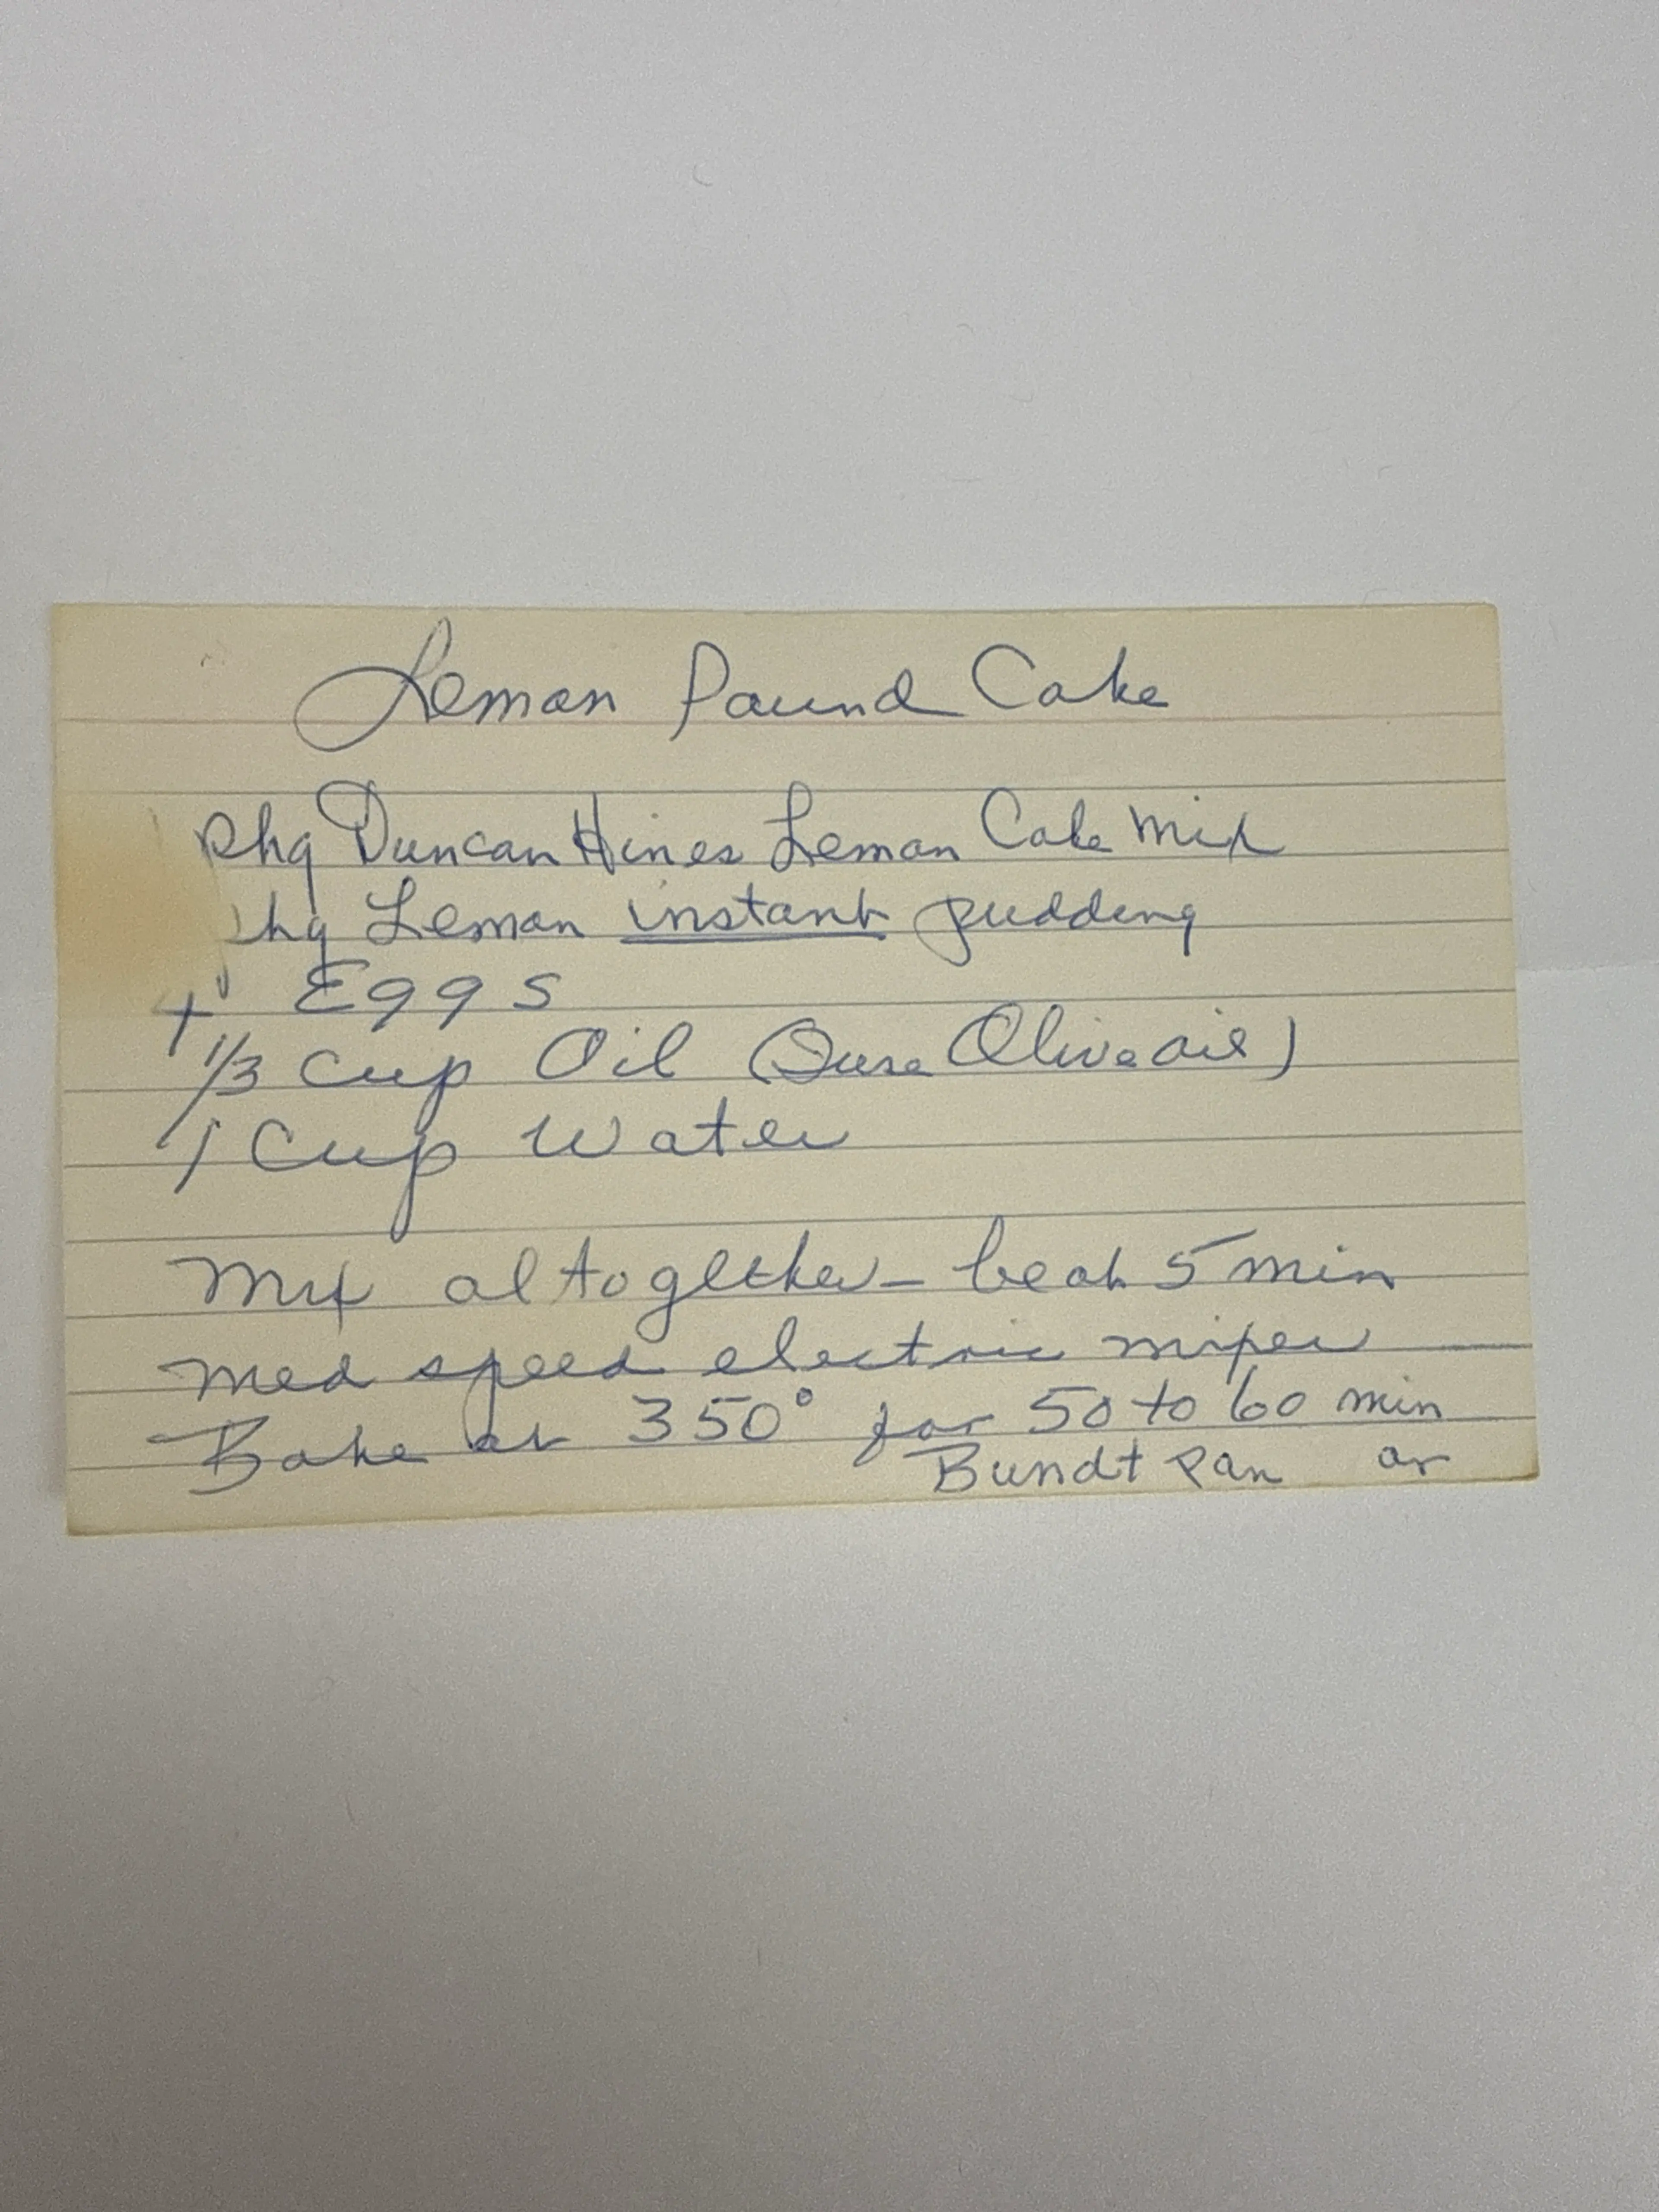 Lemon Pound Cake
pkg Duncan Hines Lemon Cake Mix
pkg Lemon instant pudding
Eggs
1/3 cup Oil (I use Olive oil)
1 Cup Water
Mix altogether - beat 5 min
med speed electric mixer
Bake at 350° for 50 to 60 min
Bundt pan or